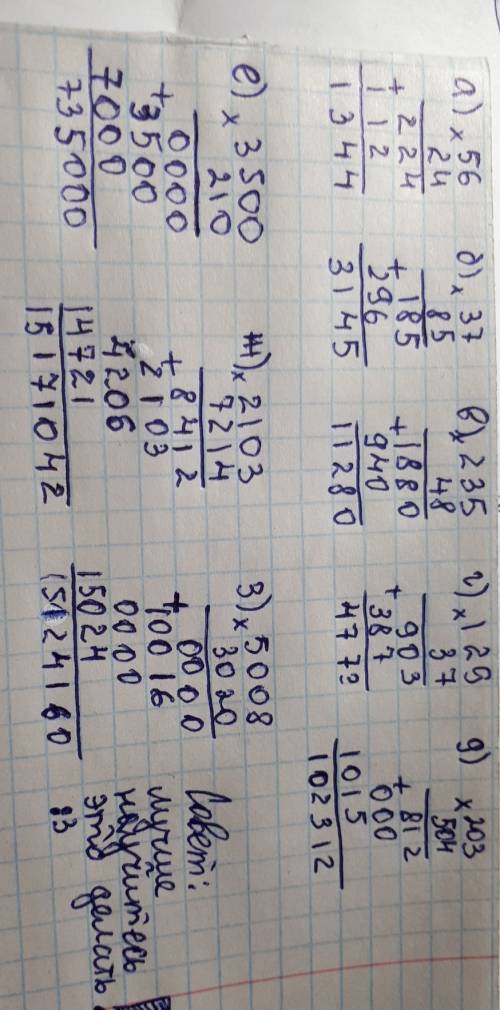 а) × 56
24
+ 224
112
1344
д) × 37
85
+ 185
296
3145
в) × 235
48
+ 1880
940
11280
г) × 129
37
+ 903
387
4773
д) × 203
504
+ 812
000
1015
102312
е) × 3500
210
+ 0000
3500
7000
735000
ж) × 2103
7214
+ 8412
2103
4206
14721
15171042
з) × 5008
3020
+ 0000
10016
0000
15024
15124160
Совет:
лучше
научитесь
это делать